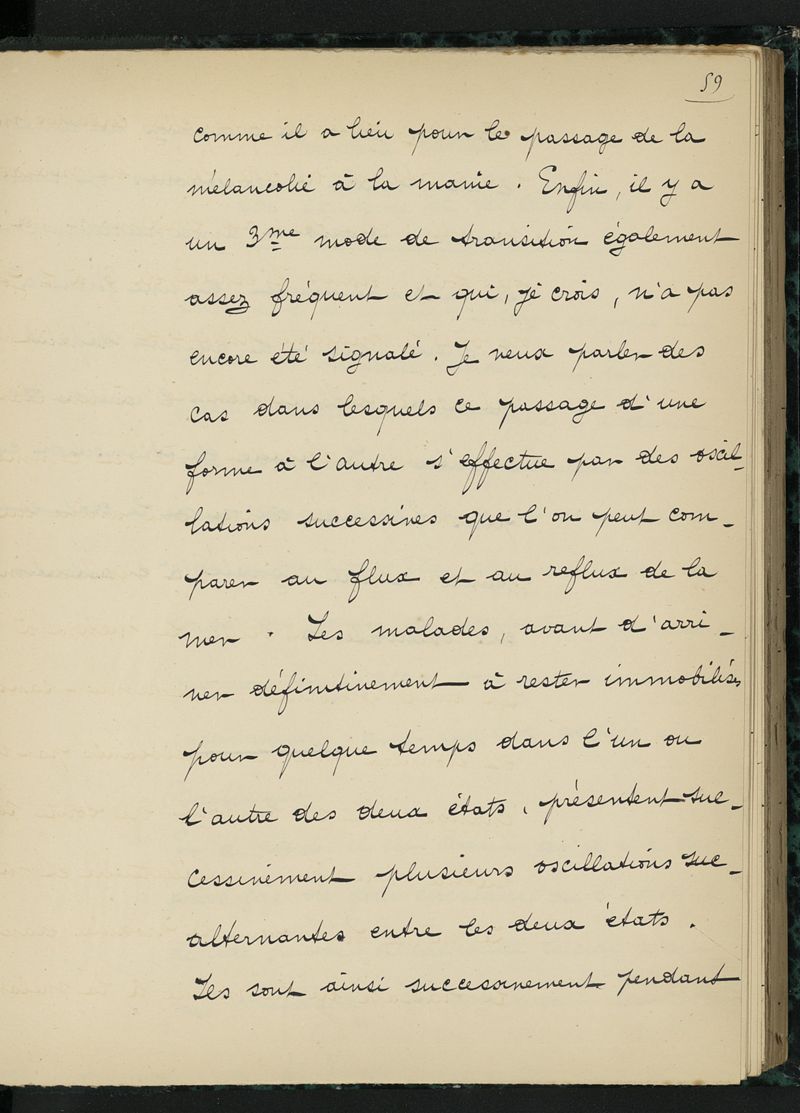 59
comme il a lieu pour le passage de la
mélancolie à la manie. Enfin, il y a
un 3me mode de transition également
assez fréquent et qui, je crois, n'a pas
encore été signalé. Je veux parler des
cas dans lesquels ce passage d'une
forme à l'autre s'effectue par des oscil-
lations successives que l'on peut com-
parer au flux et au reflux de la
mer. Les malades, avant d'arri-
ver définitivement à rester immobilisés
pour quelque temps dans l'un ou
l'autre des deux états, présentent suc-
cessivement plusieurs oscillations suc-
alternantes entre les deux états.
Ils sont ainsi successivement pendant